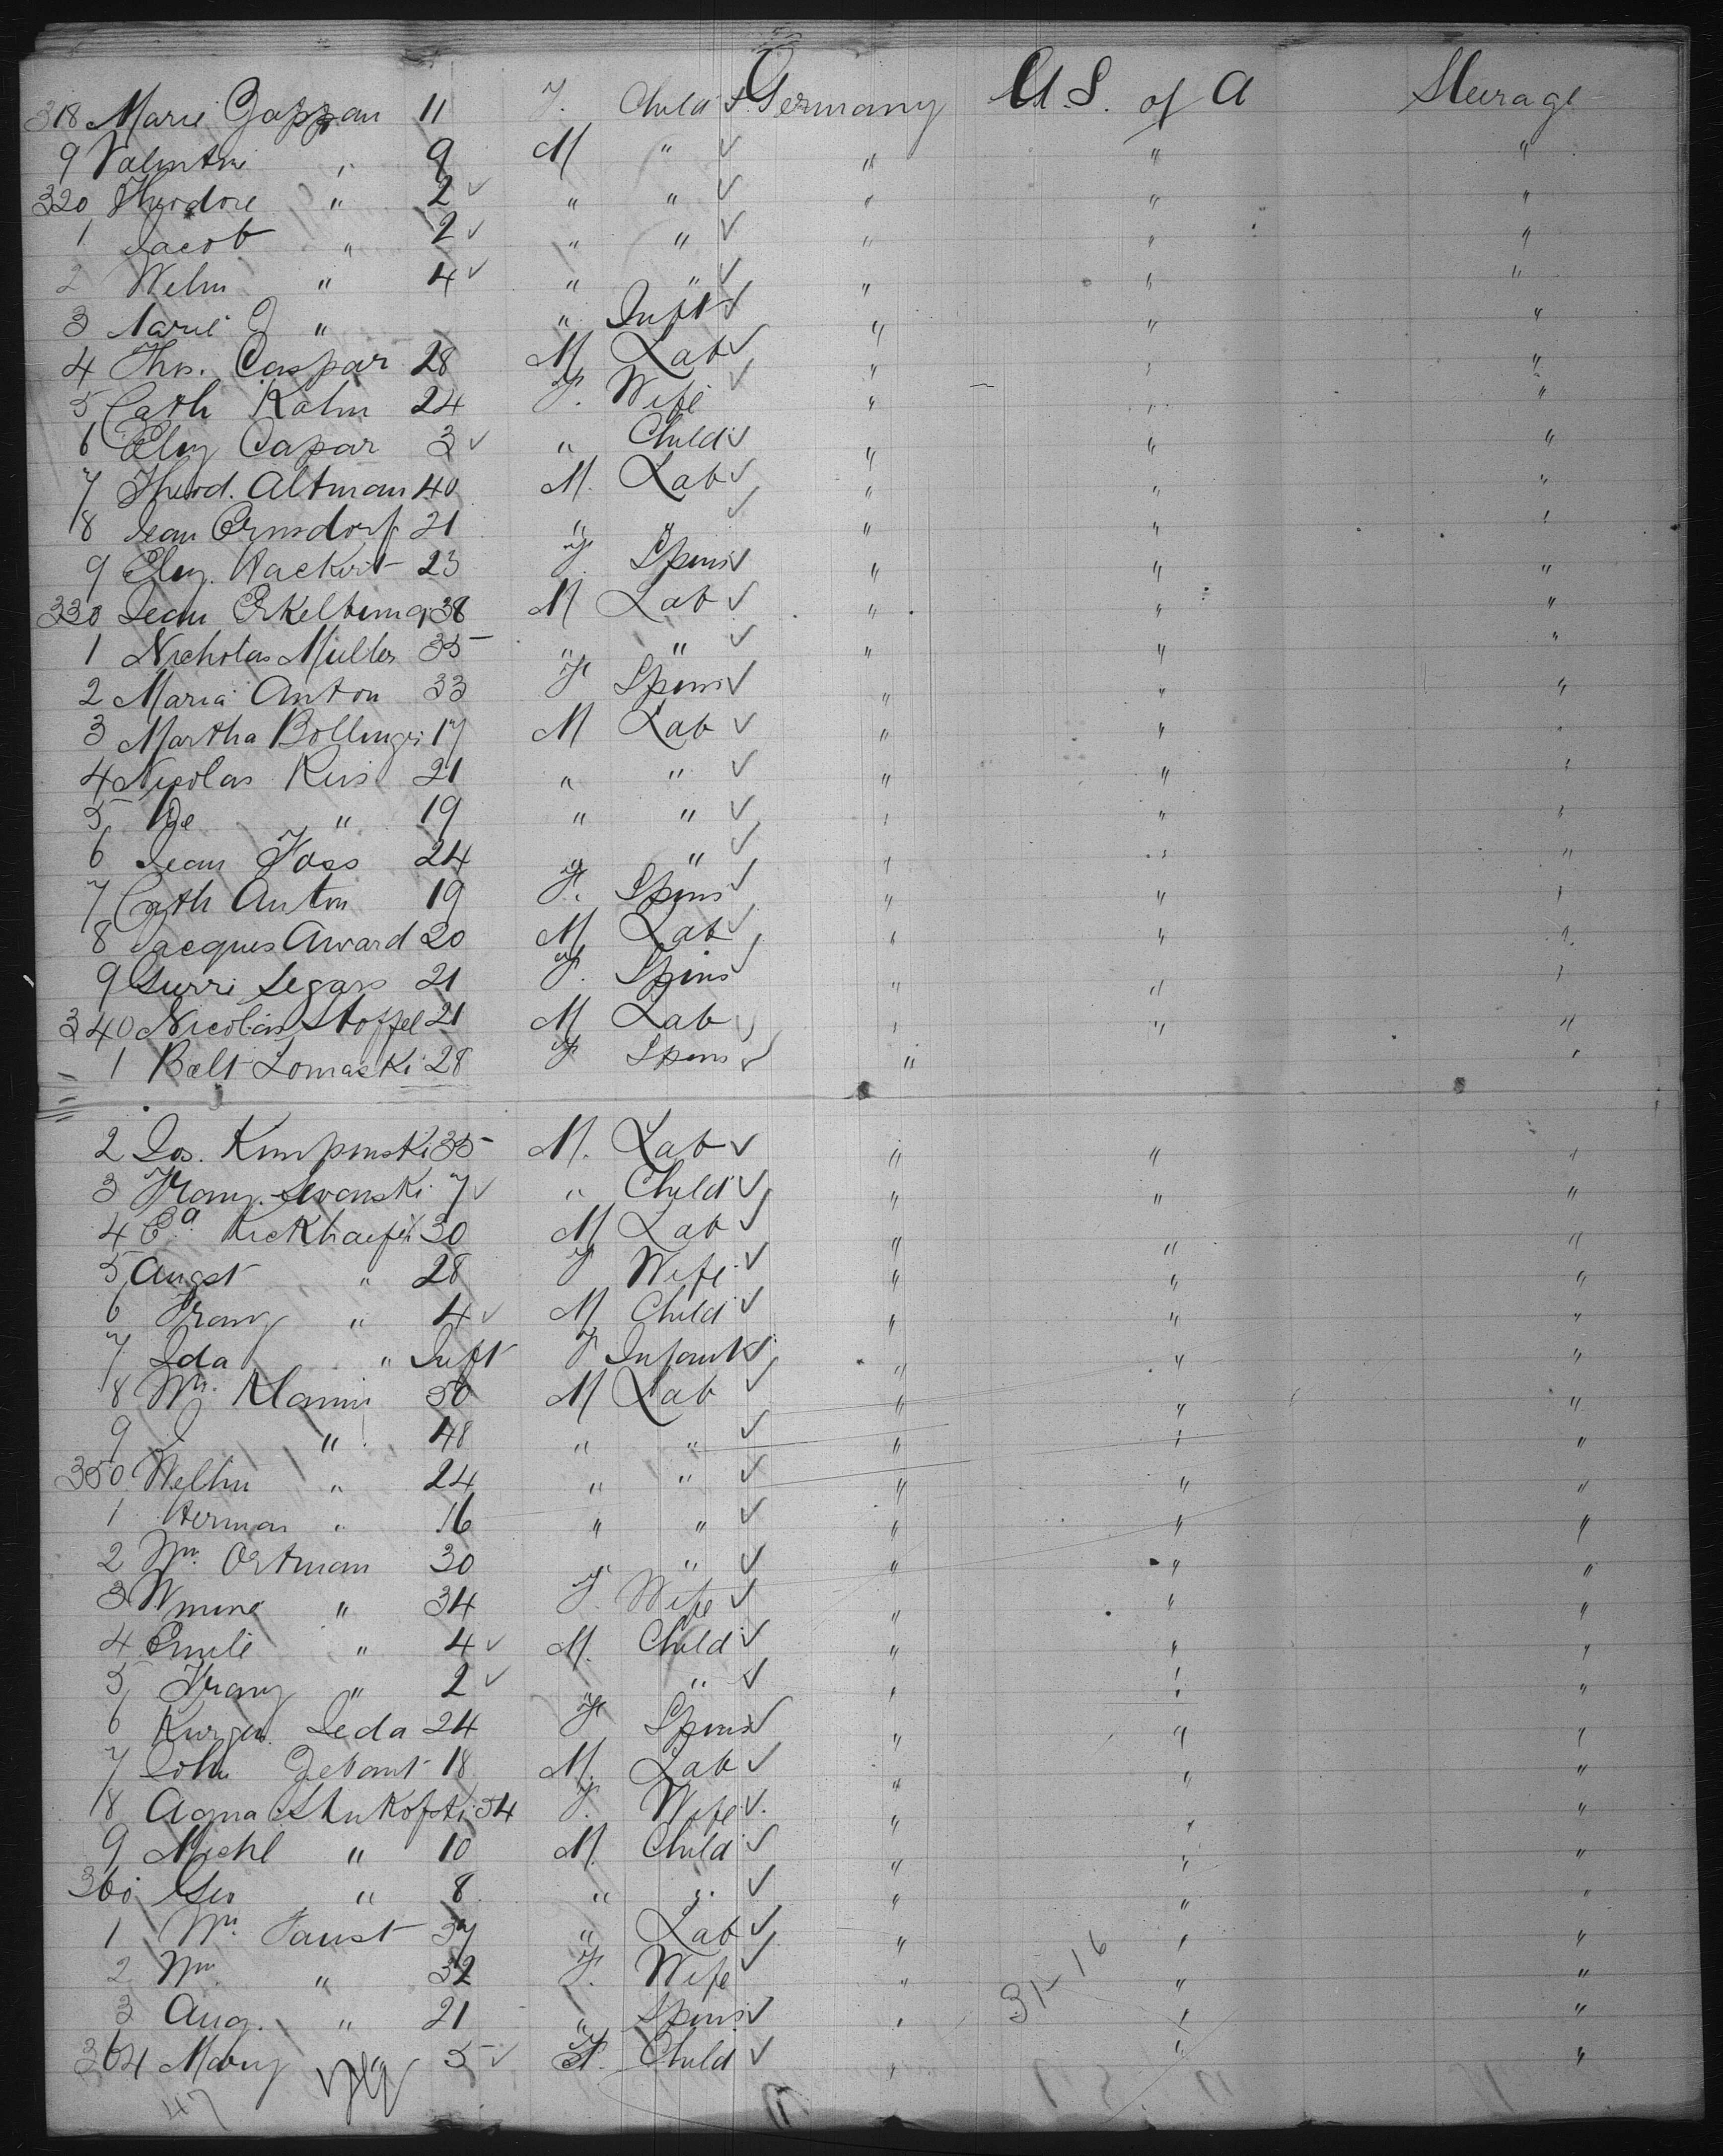 318 Marie Gappan 11 F. Child Germany U S. of A Steerage
9 Valentine " 9 M " ✓ " " "
320 Theodore " 2 ✓ " " ✓ " " "
1 Jacob " 2 ✓ " " ✓ " " "
2 Welm " 4 ✓ " " ✓ " " "
3 Marie G " " Inft ✓ " " "
4 Thos. Caspar 28 M Lab ✓ " " "
5 Cath Kahn 24 F. Wife ✓ " " "
6 Eliz Capar 3 ✓ " Child ✓ " " "
7 Theod. Altman 40 M. Lab ✓ " " "
8 Jean Ernsdorf 21 " " ✓ " " "
9 Eliz. 23 F. Spins ✓ " " "
330 Jean 38 M Lab ✓ " " "
1 Nicholas Muller 35 " " ✓ " " "
2 Maria Anton 33 F Spins ✓ " " "
3 Martha Bollinger 17 M Lab ✓ " " "
4 Nicolas 21 " " ✓ " " "
5 " 19 " " ✓ " " "
6 Jean Foss 24 " " ✓ " " "
7 Cath Anton 19 F. Spins ✓ " " "
8 Jacques Award 20 M Lab ✓ " " "
9 Segars 21 F. Spins ✓ " " "
340 Nicolas Stoffel 21 M Lab ✓ " " "
1 Balt Lomaski 28 F Spins ✓ " "
2 Jos. Kempenski 35 M. Lab ✓ " " "
3 Franz. Levonski 7 ✓ " Child ✓ " " "
4 Ed Kickhaefer 30 M Lab ✓ " " "
5 Augst " 28 F Wife ✓ " " "
6 Franz " 4 ✓ M Child ✓ " " "
7 Ida " Inft F Infant ✓ " " "
8 Wm. 50 M Lab ✓ " " "
9 J " 48 " " ✓ " " "
350 Welhm " 24 " " ✓ " " "
1 Herman " 16 " " ✓ " " "
2 Wm. Ortman 30 " " ✓ " " "
3 Wmine " 34 F. Wife ✓ " " "
4 Emile " 4 ✓ M. Child ✓ " " "
5 Franz " 2 ✓ " " ✓ " " "
6 Leda 24 F Spins ✓ " " "
7 John 18 M. Lab ✓ " " "
8 Agna Stukofski 34 F. Wife ✓ " " "
9 Michl " 10 M. Child ✓ " " "
360 Geo " 8 " " ✓ " " "
1 Wm. Faust 37 " Lab ✓ " " "
2 Wm. " 32 F. Wife ✓ " " "
3 Aug. " 21 " Spins ✓ " " "
364 Mary " 5 ✓ F. Child ✓ " " "
31-16
47